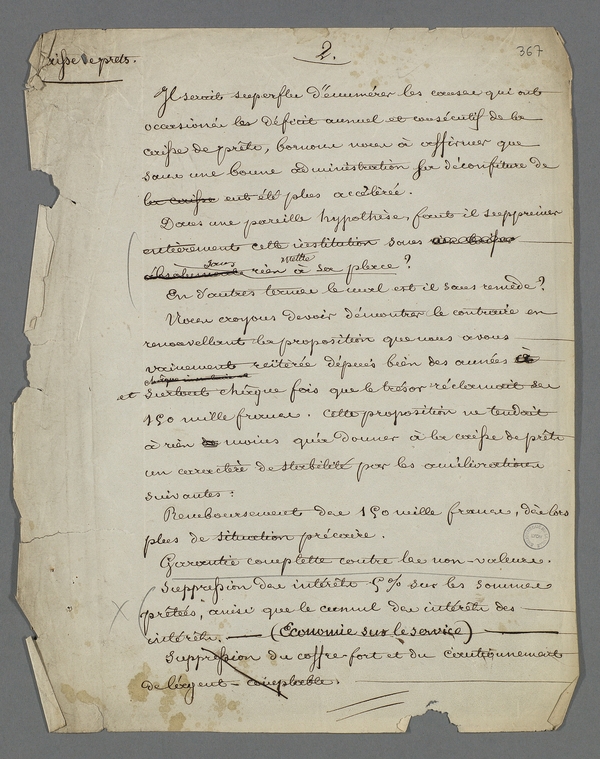 2.
367
Caisse de prêts.
Il serait superflu d'énumérer les causes qui ont
occasioné les déficit annuel et consécutif de la
caisse de prêts, bornons nous à affirmer que
sans une bonne administration sa déconfiture
la caisse eut été plus accélérée.
Dans une pareille hypothèse, faut il supprimer
entièrement cette institution sans
sans mettre
absolument rien à sa place ?
En d'autres termes le mal est il sans remède ?
Nous croyons devoir démontrer le contraire en
renouvellant la proposition que nous avons
vainement reitérée dépuis bien des années
et surtout chaque fois que le trésor réclamait ses
150 mille francs. Cette proposition ne tendait
à rien de moins qu'à donner à la caisse de prêts
un caractère de stabilité par les améliorations
suivantes :
Remboursement des 150 mille francs, dès lors
plus de situation précaire.
Garantie complette contre les non-valeurs.
Suppression des intérêts 5% sur les sommes
prêtées, ainsi que le cumul des intérêts des
intérêts. — (Économie sur le service) —
Suppression du coffre-fort et du cautionnement
de l'agent-comptable.